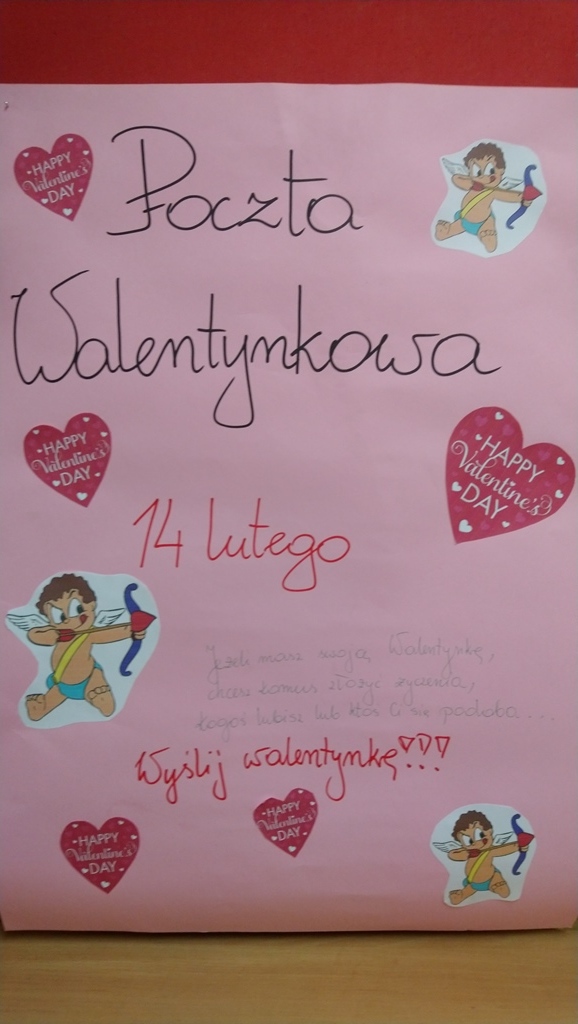 HAPPY
Valentine's
DAY
Poczta
Walentynkowa
HAPPY
Valentine's
DAY
HAPPY
Valentine's
DAY
14 lutego
Jeżeli masz swoją Walentynkę,
chcesz komuś złożyć życzenia,
kogoś lubisz lub ktoś Ci się podoba...
Wyślij walentynkę!!!
HAPPY
Valentine's
DAY
HAPPY
Valentine's
DAY